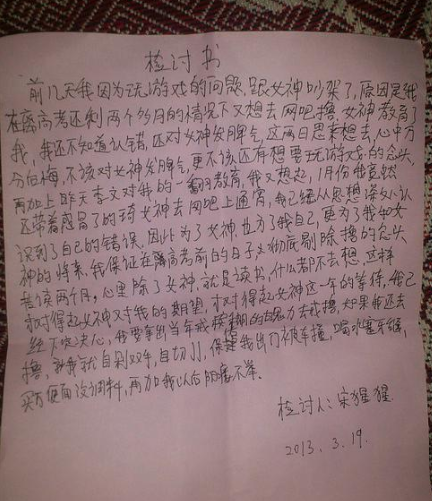 检讨书
前几天我因为玩游戏的问题,跟女神吵架了,原因是我
在离高考还剩两个多月的情况下又想去网吧撸,女神教育了
我,我还不知道认错,还对女神发脾气,这两日思来想去,心中万
分后悔,不该对女神发脾气,更不该还有想要玩游戏的念头,
再加上昨天李文对我的一翻教育,我又想起,1月份我竟然
还带着感冒了的琦女神去网吧上通宵,我已经从思想深处认
识到了自己的错误,因此为了女神也为了我自己,更为了我和女
神的将来,我保证在离高考前的日子必彻底剔除撸的念头
接读两个月,心里除了女神,就是读书,什么都不去想,这样
才对得起女神又对我的期望,才对得起女神这一年的等待,我已
经下定决心,我要拿出当年我 的魄力去戒撸,如果我还去
撸,那我就自剁双手,自切JJ,保佑我出门被车撞,喝水塞牙缝,
买方便面没调料,再加我以后阳痿不举.
检讨人:宋猩猩
2013.3.19.